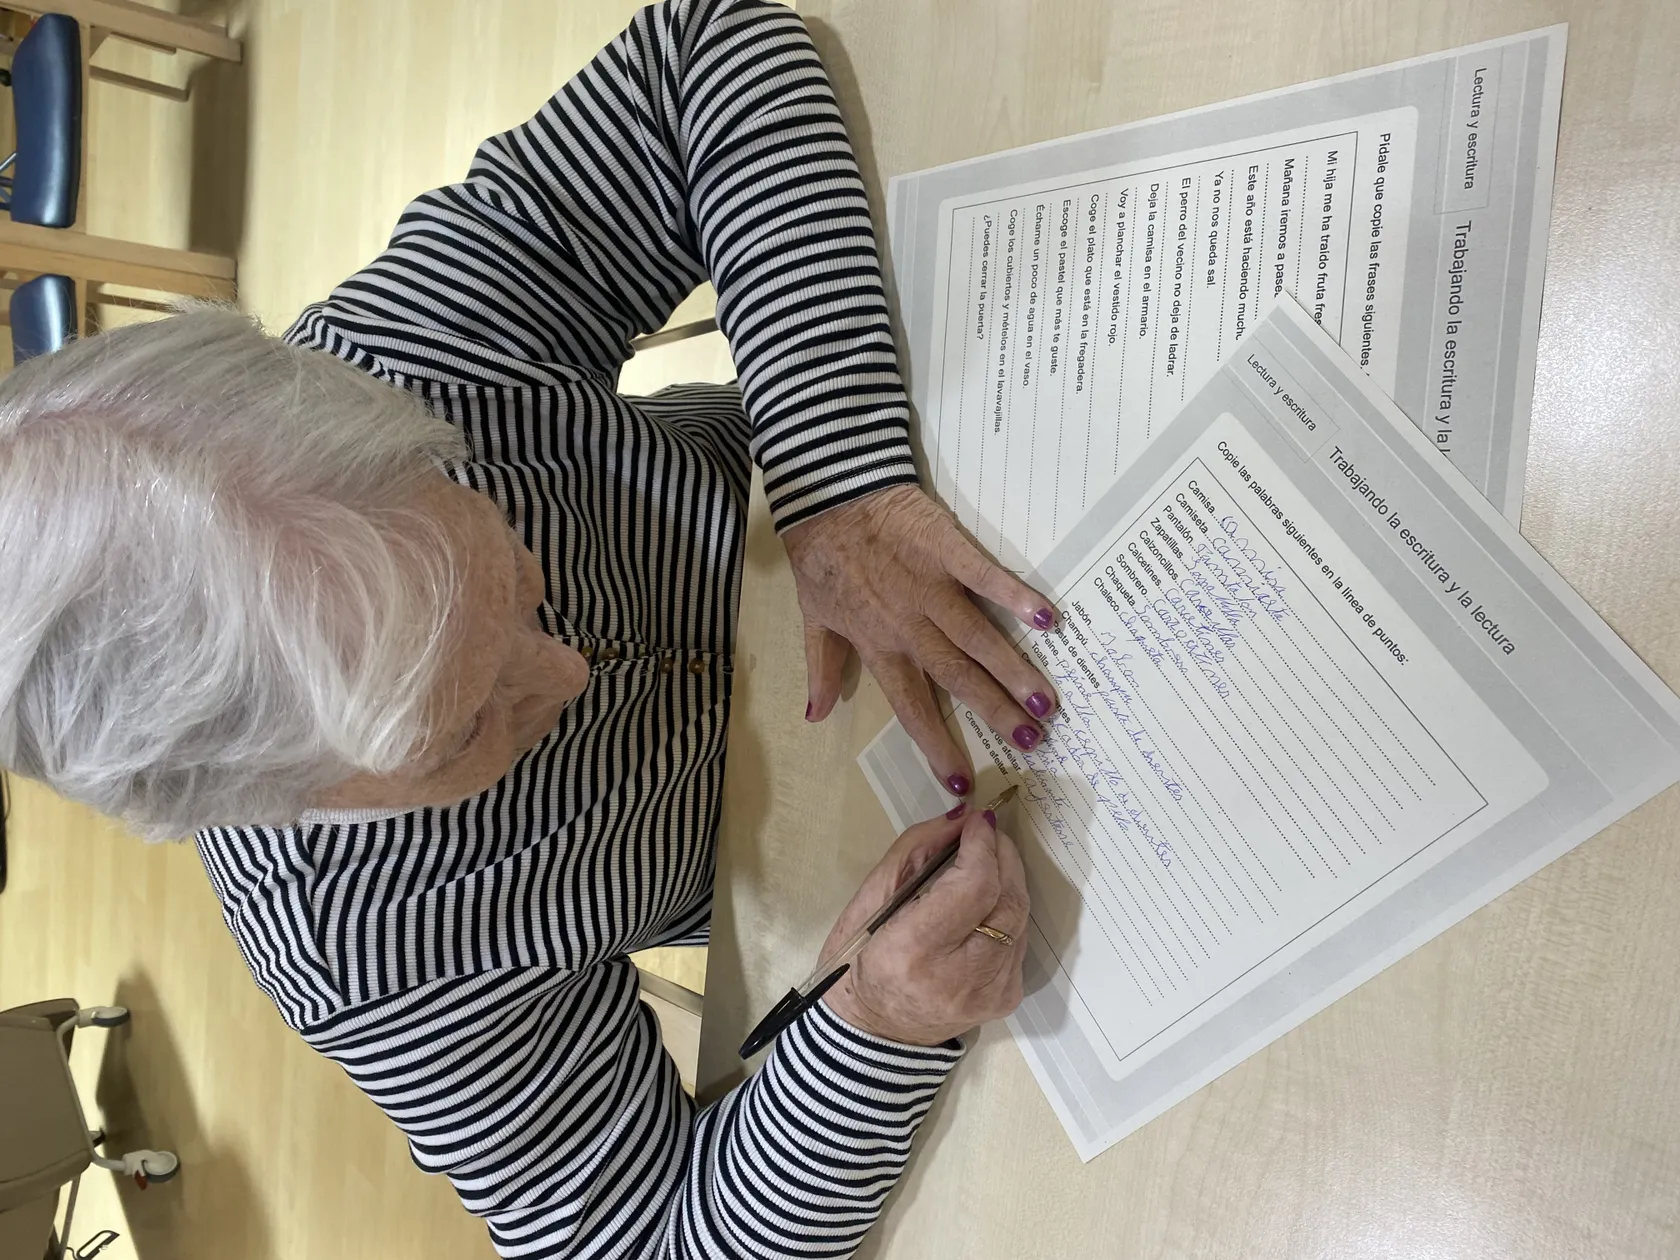 Lectura y escritura
Trabajando la escritura y la l
Pídale que copie las frases siguientes.
Mi hija me ha traído fruta fres
Mañana iremos a pase
Este año está haciendo much
Ya no nos queda sal.
El perro del vecino no deja de ladrar.
Deja la camisa en el armario.
Voy a planchar el vestido rojo.
Coge el plato que está en la fregadera.
Escoge el pastel que más te guste.
Échame un poco de agua en el vaso.
Coge los cubiertos y mételos en el lavavajillas.
¿Puedes cerrar la puerta?
Lectura y escritura
Trabajando la escritura y la lectura
Copie las palabras siguientes en la línea de puntos:
Camisa Camisa
Camiseta Camiseta
Pantalón
Zapatillas
Calzoncillos
Calcetines Calcetines
Sombrero
Chaqueta
Chaleco
Jabón
Champú champu
Pasta de dientes pasta de dientes
Peine peine
Toalla cepillo de dientes
de afeitar
Crema de afeitar